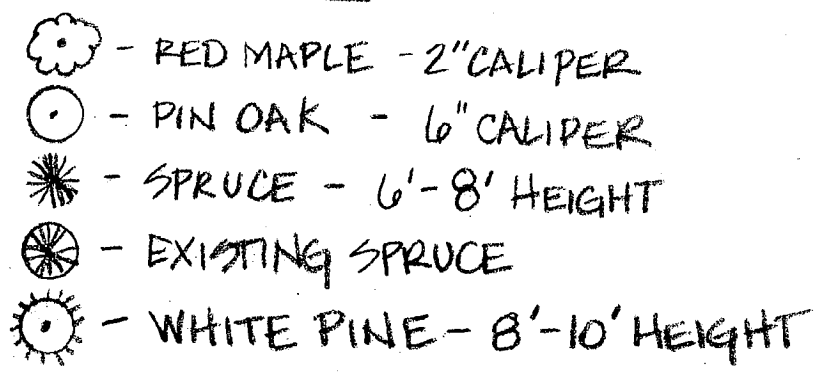 - RED MAPLE - 2" CALIPER
- PIN OAK - 6" CALIPER
- SPRUCE - 6'-8' HEIGHT
- EXISTING SPRUCE
- WHITE PINE - 8'-10' HEIGHT